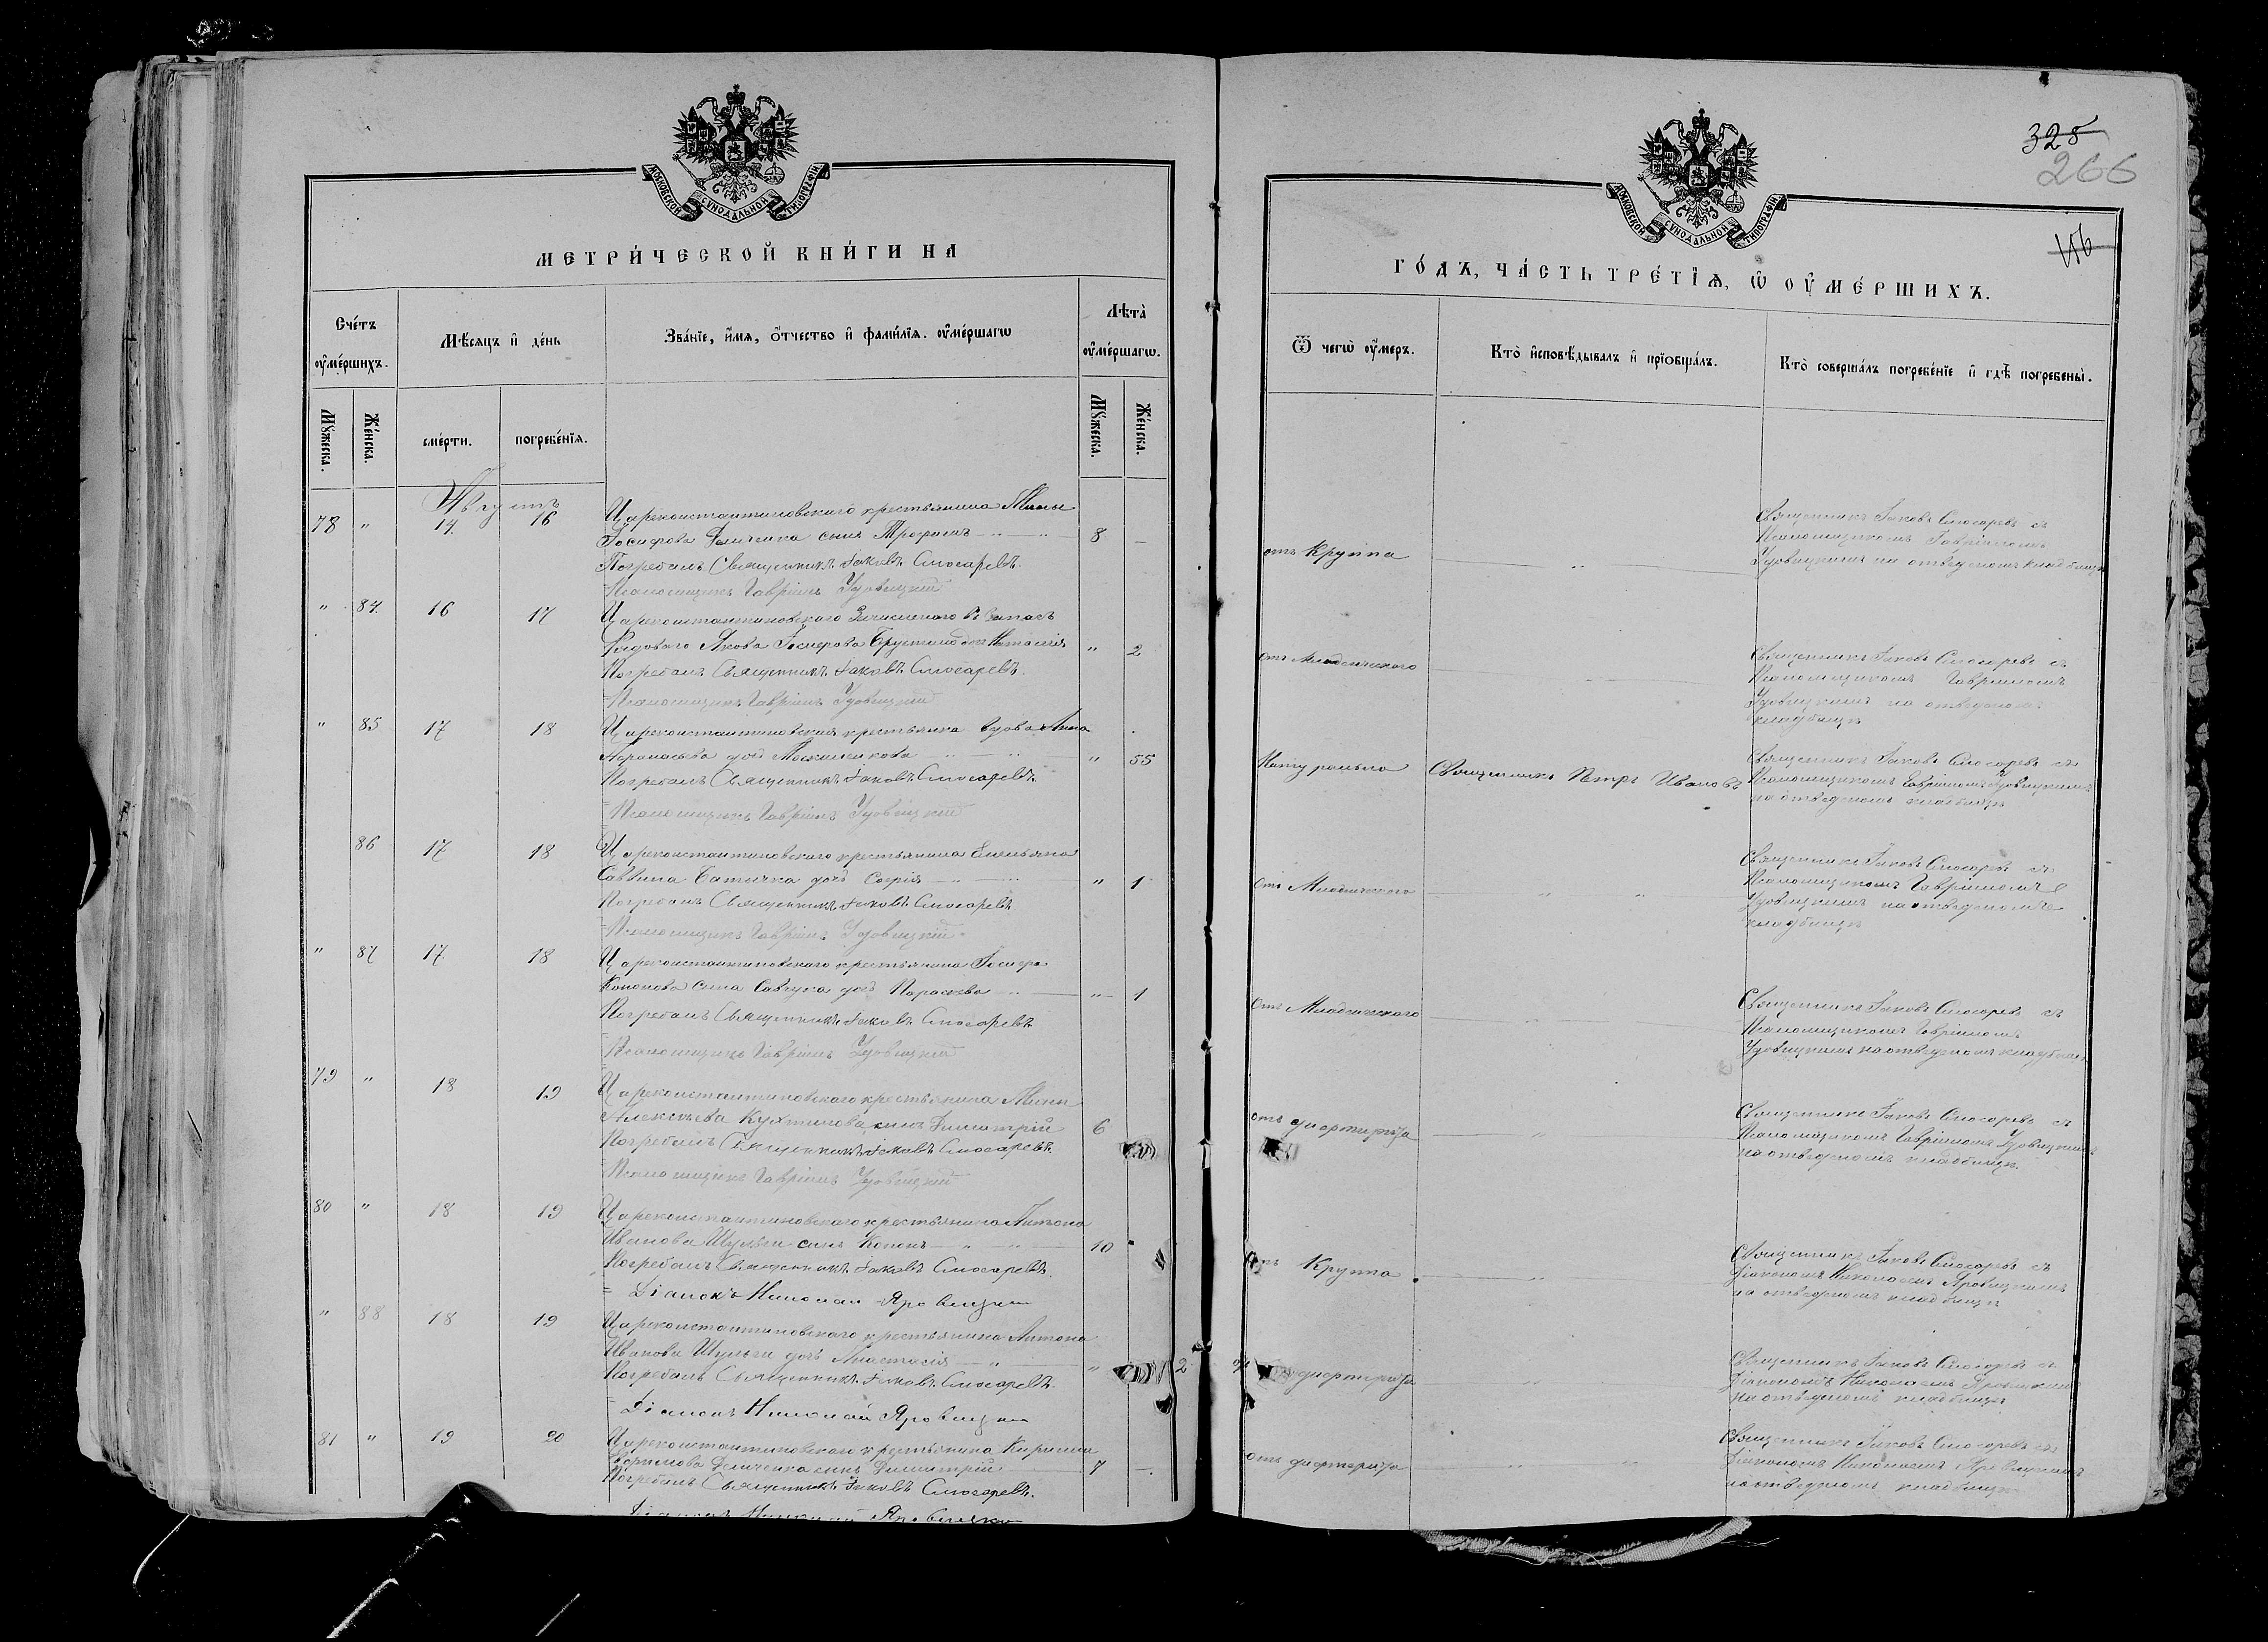 МОСКОВСКОЙ СѴНОДАЛЬНОЙ ТИПОГРАФІИ
МЕТРИ́ЧЕСКОЙ КНИ́ГИ НА
Сче́тъ оу҆ме́ршихъ.
Мѣ́сяцъ и҆ де́нь
Зва́нїе, и҆́мѧ, ѻ҆́тчество и҆ фами́лїѧ. оу҆ме́ршагѡ
Лѣта̀ оу҆ме́ршагѡ.
Мꙋ́жеска.
Же́нска.
сме́рти.
погребе́нїѧ.
Мꙋ́жеска.
Же́нска.
Августъ
78 " 14 16 Цареконстантиновскаго крестьянина Мины
Іосифова сынъ Трофимъ 8 –
Погребалъ Священникъ Іаковъ Слюсаревъ.
Псаломщикъ Гавріилъ Удовицкій
" 84 16 17 Цареконстантиновскаго въ запасъ
Рядового Якова Іосифова дочь Наталія " 2
Погребалъ Священникъ Іаковъ Слюсаревъ.
Псаломщикъ Гавріилъ Удовицкій
" 85 17 18 Цареконстантиновская крестьянка вдова Анна
" 55
Погребалъ Священникъ Іаковъ Слюсаревъ.
Псаломщикъ Гавріилъ Удовицкій
86 17 18 Цареконстантиновскаго крестьянина Емельяна
Саввина дочь Софія " 1
Погребалъ Священникъ Іаковъ Слюсаревъ
Псаломщикъ Гавріилъ Удовицкій
" 87 17 18 Цареконстантиновскаго крестьянина Іосифа
Кононова сына Савчука дочь Параскева " 1
Погребалъ Священникъ Іаковъ Слюсаревъ
Псаломщикъ Гавріилъ Удовицкій
79 " 18 19 Цареконстантиновскаго крестьянина Мины
Алексѣева Кухтинова сынъ Димитрій 6
Погребалъ Священникъ Іаковъ Слюсаревъ.
Псаломщикъ Гавріилъ Удовицкій
80 " 18 19 Цареконстантиновскаго крестьянина Антона
Иванова Шульги сынъ Кононъ 10
Погребалъ Священникъ Іаковъ Слюсаревъ.
Діаконъ Николай Яровицкій
" 88 18 19 Цареконстантиновскаго крестьянина Антона
Иванова Шульги дочь Анастасія " 2
Погребалъ Священникъ Іаковъ Слюсаревъ.
Діаконъ Николай Яровицкій
81 " 19 20 Цареконстантиновскаго крестьянина Кирилла
сынъ Димитрій 7 –
Погребалъ Священникъ Іаковъ Слюсаревъ.
Діаконъ Николай Яровицкій
МОСКОВСКОЙ СѴНОДАЛЬНОЙ ТИПОГРАФІИ
325
266
ГО́ДЪ, ЧА́СТЬ ТРЕ́ТЇѦ, Ѡ҆ ОУ҆МЕ́РШИХЪ.
Ѿ чегѡ̀ оу҆́меръ.
Кто̀ и҆сповѣ́дывалъ и҆ прїѻбща́лъ.
Кто̀ соверша́лъ погребе́нїе и҆ гдѣ̀ погребены̀.
отъ Круппа
Священникъ Іаковъ Слюсаревъ съ
Псаломщикомъ Гавріиломъ
Удовицкимъ на отведеномъ кладбищѣ
отъ Младенческаго
Священникъ Іаковъ Слюсаревъ съ
Псаломщикомъ Гавріиломъ
Удовицкимъ на отведеномъ
кладбищѣ
Натурально
Священникъ Петръ Ивановъ
Священникъ Іаковъ Слюсаревъ съ
Псаломщикомъ Гавріиломъ Удовицкимъ
на отведеномъ кладбищѣ
отъ Младенческаго
Священникъ Іаковъ Слюсаревъ съ
Псаломщикомъ Гавріиломъ
Удовицкимъ на отведеномъ
кладбищѣ
отъ Младенческаго
Священникъ Іаковъ Слюсаревъ съ
Псаломщикомъ Гавріиломъ
Удовицкимъ на отведеномъ кладбищѣ
отъ дифтерита
Священникъ Іаковъ Слюсаревъ съ
Псаломщикомъ Гавріиломъ Удовицкимъ
на отведеномъ кладбищѣ.
отъ Круппа
Священникъ Іаковъ Слюсаревъ съ
Діакономъ Николаемъ Яровицкимъ
на отведеномъ кладбищѣ
отъ дифтерита
Священникъ Іаковъ Слюсаревъ съ
Діакономъ Николаемъ Яровицкимъ
на отведеномъ кладбищѣ
отъ дифтерита
Священникъ Іаковъ Слюсаревъ съ
Діакономъ Николаемъ Яровицкимъ
на отведеномъ кладбищѣ